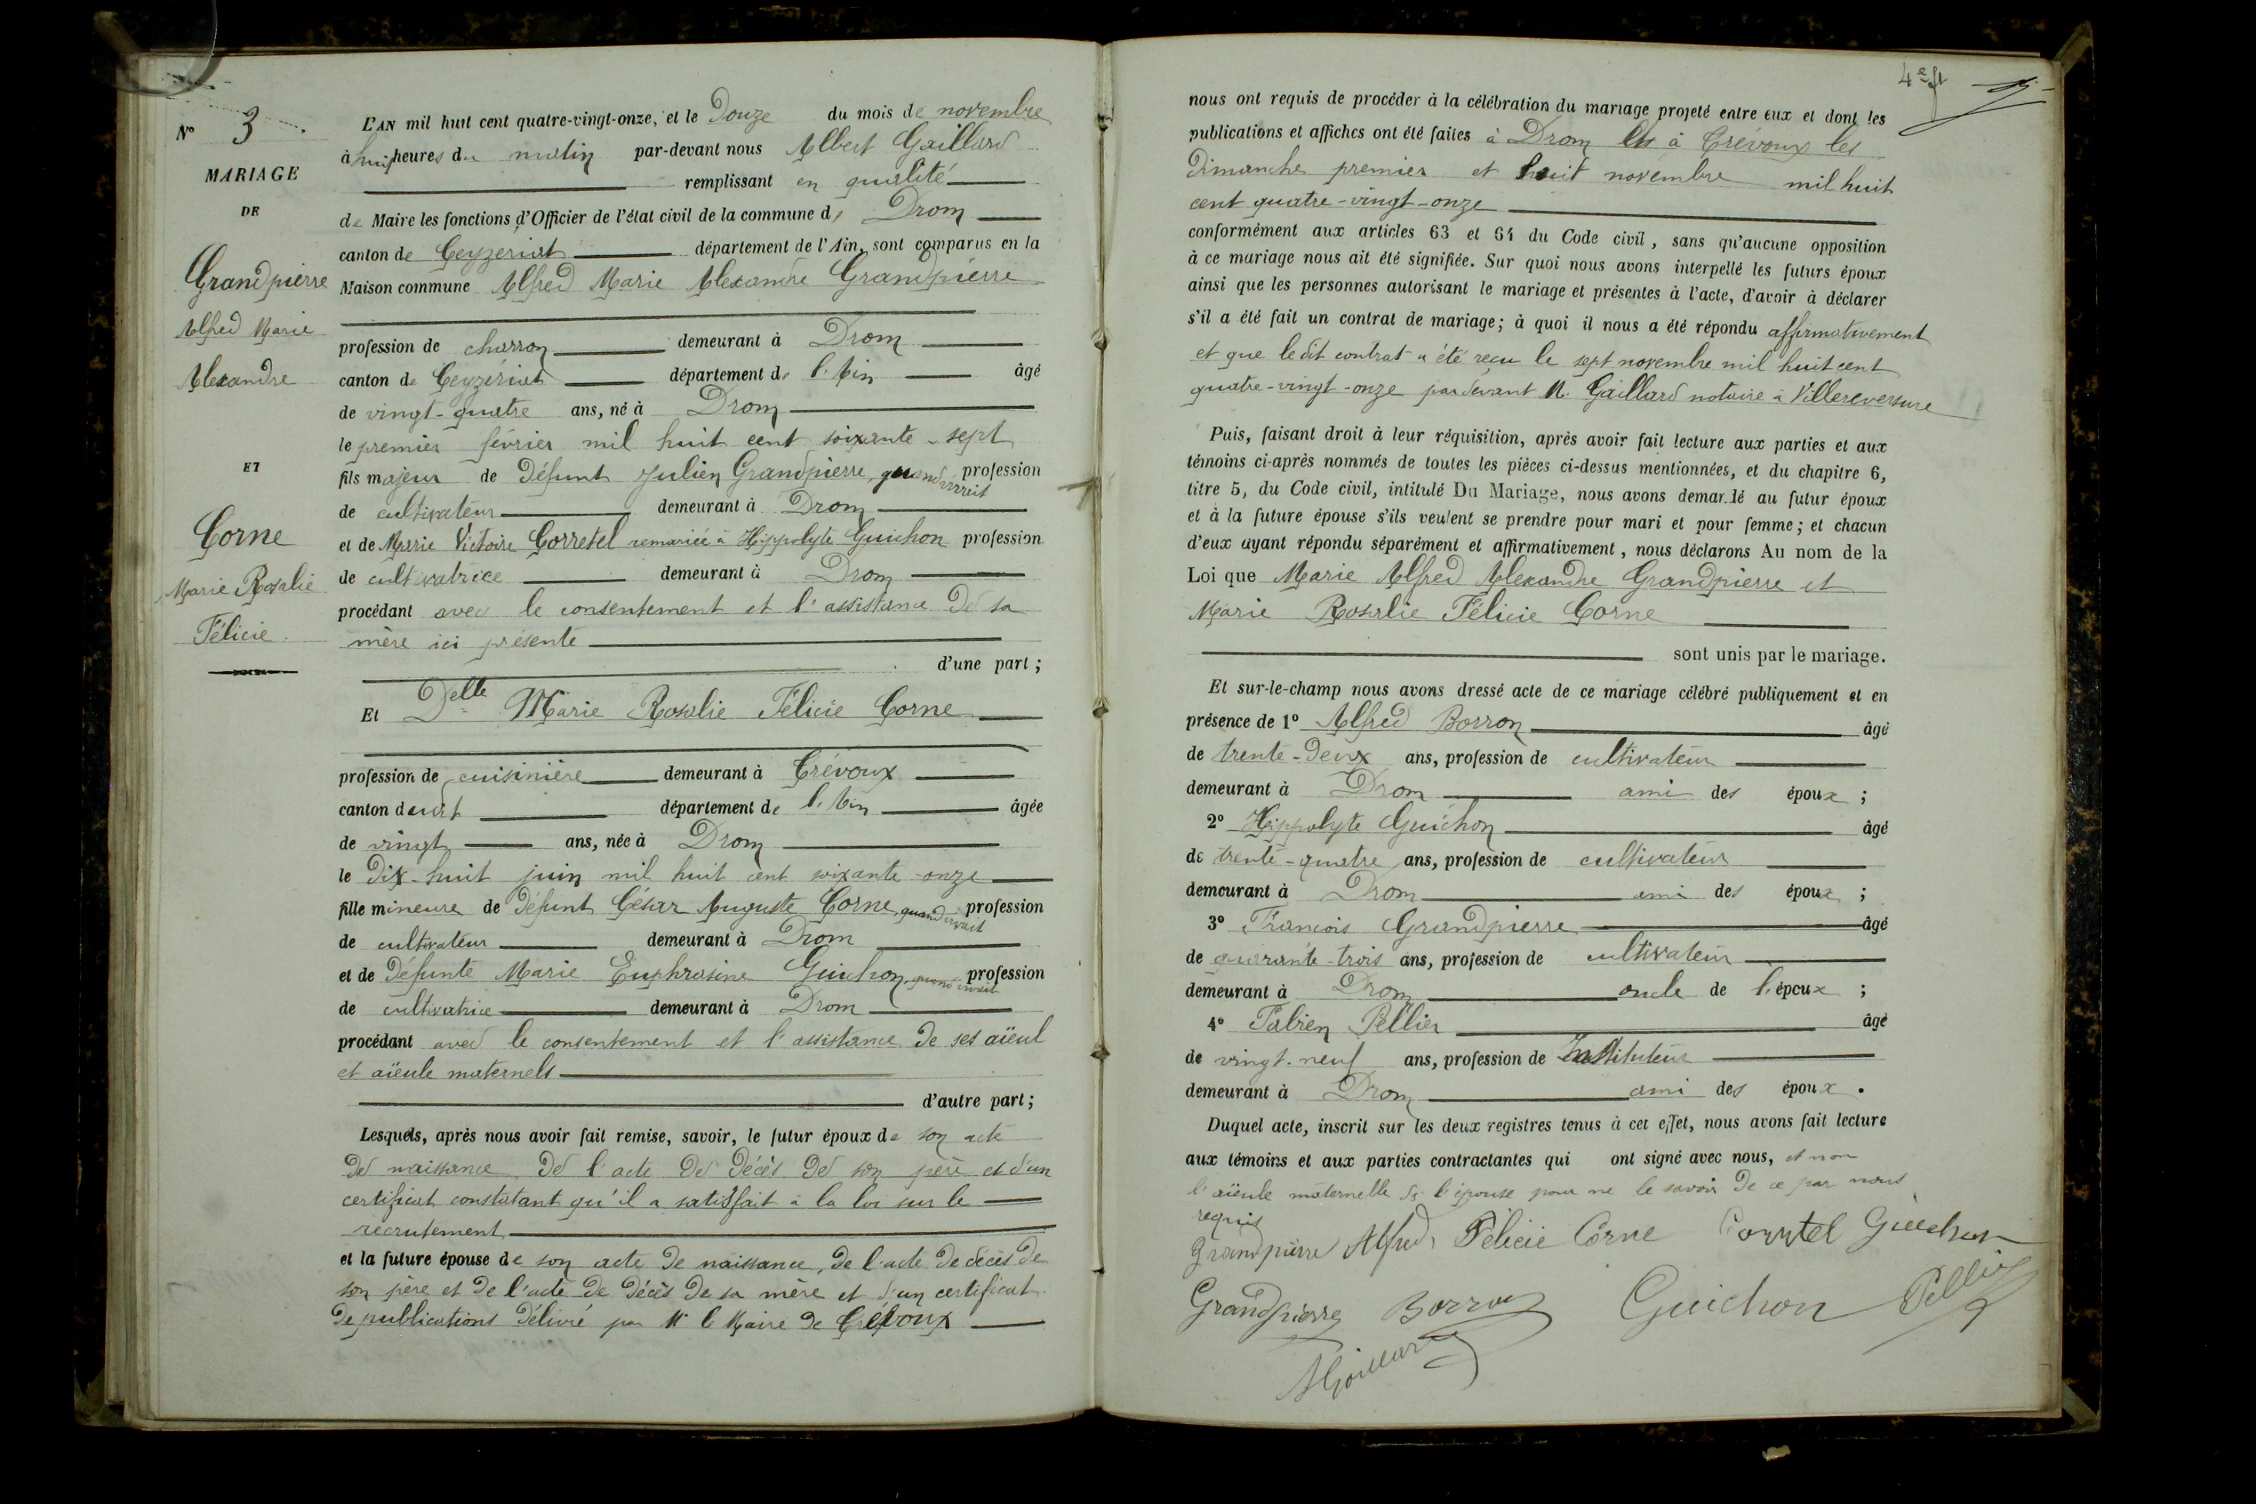 N° 3
MARIAGE
DE
Grandpierre
Alfred Marie
Alexandre
ET
Corne
Marie Rosalie
Félicie
L'AN mil huit cent quatre-vingt-onze, et le Douze du mois de novembre
à huit heures du matin par-devant nous Albert Gaillard
remplissant en qualité
de Maire les fonctions d'Officier de l'état civil de la commune de Drom
canton de Ceyzériat département de l'Ain, sont comparus en la
Maison commune Alfred Marie Alexandre Grandpierre
profession de charron demeurant à Drom
canton de Ceyzériat département de l'Ain âgé
de vingt-quatre ans, né à Drom
le premier février mil huit cent soixante-sept
fils majeur de Défunt Julien Grandpierre, quand vivait profession
de cultivateur demeurant à Drom
et de Marie Victoire Corretel remariée à Hippolyte Guichon profession
de cultivatrice demeurant à Drom
procédant avec le consentement et l'assistance de sa
mère ici présente
d'une part ;
Et Delle Marie Rosalie Félicie Corne
profession de cuisinière demeurant à Trévoux
canton dudit département de l'Ain âgée
de vingt ans, née à Drom
le Dix-huit juin mil huit cent soixante-onze
fille mineure de Défunt César Auguste Corne, quand vivait profession
de cultivateur demeurant à Drom
et de Défunte Marie Euphrasine Guichon, quand vivait profession
de cultivatrice demeurant à Drom
procédant avec le consentement et l'assistance de ses aïeul
et aïeule maternels
d'autre part ;
Lesquels, après nous avoir fait remise, savoir, le futur époux de son acte
de naissance, de l'acte de décès de son père et d'un
certificat constatant qu'il a satisfait à la loi sur le
recrutement
et la future épouse de son acte de naissance, de l'acte de décès de
son père et de l'acte de décès de sa mère et d'un certificat
de publications délivré par Mr le Maire de Trévoux
4e ft
nous ont requis de procéder à la célébration du mariage projeté entre eux et dont les
publications et affiches ont été faites à Drom et à Trévoux les
Dimanche premier et huit novembre mil huit
cent quatre-vingt-onze
conformément aux articles 63 et 64 du Code civil, sans qu'aucune opposition
à ce mariage nous ait été signifiée. Sur quoi nous avons interpellé les futurs époux
ainsi que les personnes autorisant le mariage et présentes à l'acte, d'avoir à déclarer
s'il a été fait un contrat de mariage ; à quoi il nous a été répondu affirmativement
et que ledit contrat a été reçu le sept novembre mil huit cent
quatre-vingt-onze par devant M. Gaillard notaire à Villereversure
Puis, faisant droit à leur réquisition, après avoir fait lecture aux parties et aux
témoins ci-après nommés de toutes les pièces ci-dessus mentionnées, et du chapitre 6,
titre 5, du Code civil, intitulé Du Mariage, nous avons demandé au futur époux
et à la future épouse s'ils veulent se prendre pour mari et pour femme ; et chacun
d'eux ayant répondu séparément et affirmativement, nous déclarons Au nom de la
Loi que Marie Alfred Alexandre Grandpierre et
Marie Rosalie Félicie Corne
sont unis par le mariage.
Et sur-le-champ nous avons dressé acte de ce mariage célébré publiquement et en
présence de 1° Alfred Borron âgé
de trente-deux ans, profession de cultivateur
demeurant à Drom ami des époux ;
2° Hippolyte Guichon âgé
de trente-quatre ans, profession de cultivateur
demeurant à Drom ami des époux ;
3° François Grandpierre âgé
de quarante-trois ans, profession de cultivateur
demeurant à Drom oncle de l'époux ;
4° Fabien Pellier âgé
de vingt-neuf ans, profession de Instituteur
demeurant à Drom ami des époux.
Duquel acte, inscrit sur les deux registres tenus à cet effet, nous avons fait lecture
aux témoins et aux parties contractantes qui ont signé avec nous, et non
l'aïeule maternelle de l'épouse pour ne le savoir de ce par nous
requis
Grandpierre Alfred, Félicie Corne Corretel Guichon
Grandpierre Borron Guichon Pellier
A Gaillard